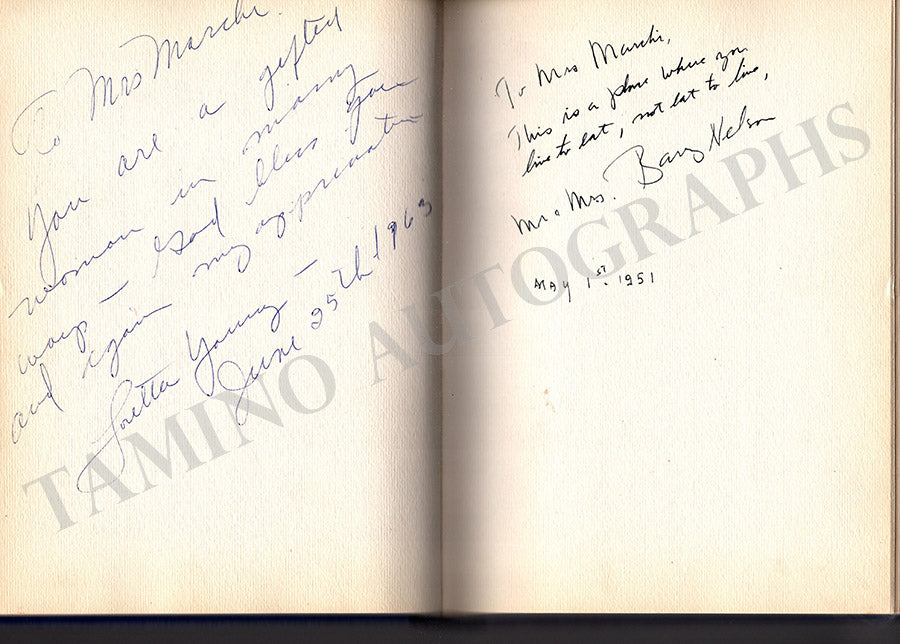 To Mrs Marchi.
You are a gifted
woman in many
ways – God bless you
and again my appreciation
Loretta Young –
June 25th – 1963
To Mrs Marchi,
This is a place where you
live to eat, not eat to live,
Mr & Mrs. Barry Nelson
May 1st. 1951
TAMINO AUTOGRAPHS